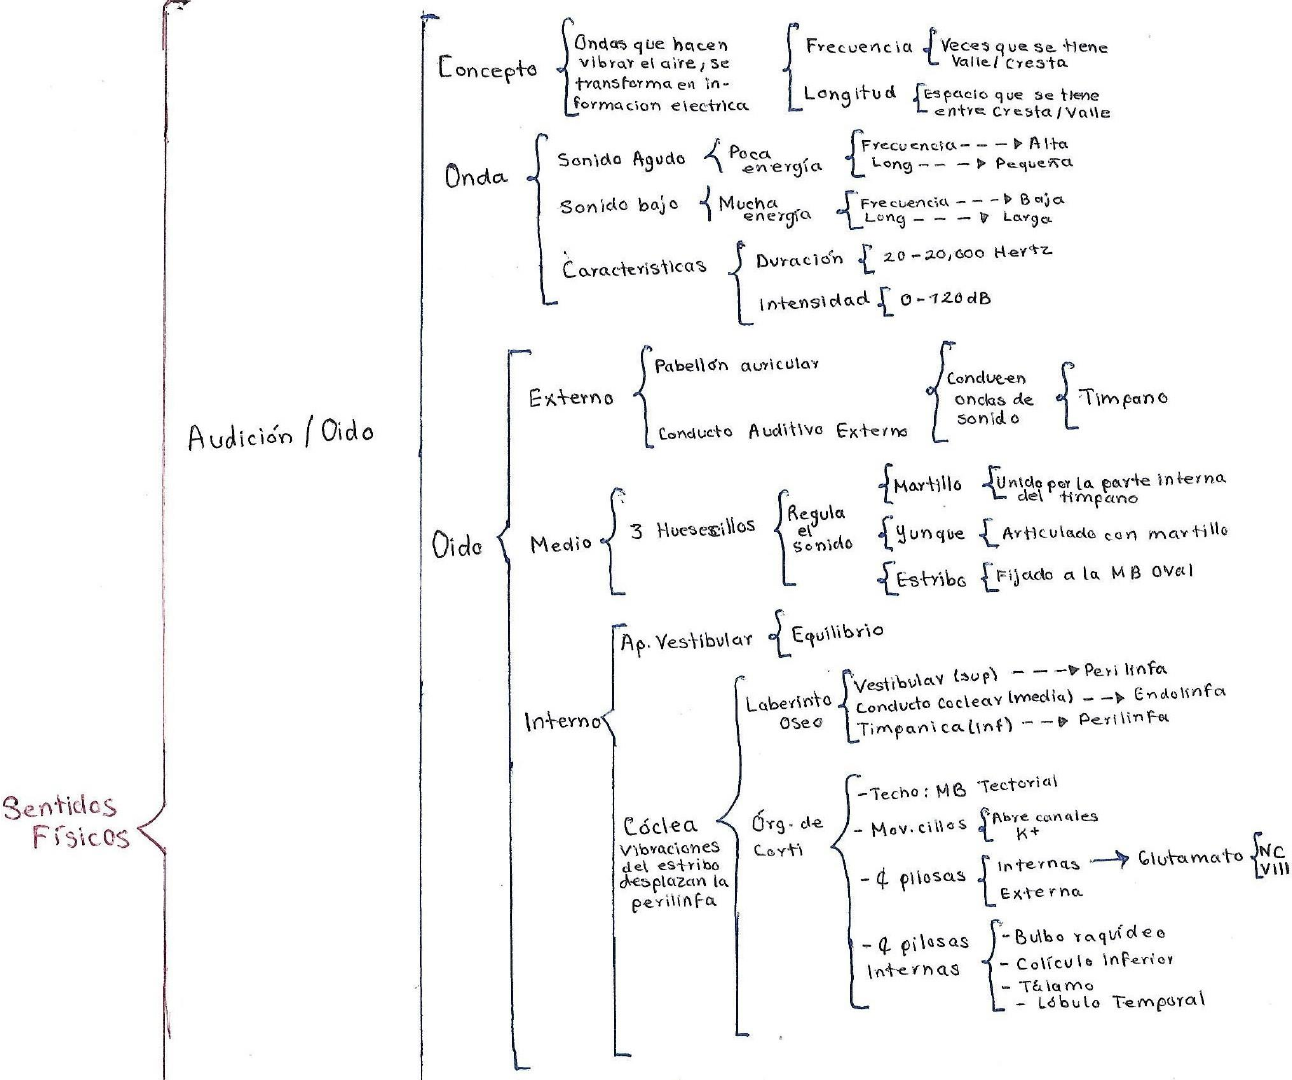 Concepto
Ondas que hacen
vibrar el aire, se
transforma en in-
formacion electrica
Frecuencia
Veces que se tiene
Valle/Cresta
Longitud
Espacio que se tiene
entre Cresta/Valle
Onda
Sonido Agudo
Poca
energía
Frecuencia - - - ▷ Alta
Long - - - ▷ Pequeña
Sonido bajo
Mucha
energía
Frecuencia - - - ▷ Baja
Long - - - - ▷ Larga
Características
Duración
20-20,000 Hertz
Intensidad
0-120dB
Audición / Oido
Oido
Externo
Pabellón auricular
Conducto Auditivo Externo
Conducen
ondas de
sonido
Timpano
Medio
3 Huesesillos
Regula
el
Sonido
Martillo
Unido por la parte interna
del timpano
Yunque
Articulado con martillo
Estribo
Fijado a la MB oval
Interno
Ap. Vestibular
Equilibrio
Cóclea
Vibraciones
del estribo
desplazan la
perilinfa
Laberinto
Oseo
Vestibular (sup) - - - ▷ Perilinfa
Conducto Coclear (media) - - ▷ Endolinfa
Timpanica (inf) - - - ▷ Perilinfa
Órg. de
Corti
- Techo: MB Tectorial
- Mov. cilios
Abre canales
K+
- ₵ pliosas
Internas → Glutamato
NC
VIII
Externa
- ₵ pilosas
Internas
- Bulbo raquídeo
- Colículo inferior
- Tálamo
- Lóbulo Temporal
Sentidos
Físicos